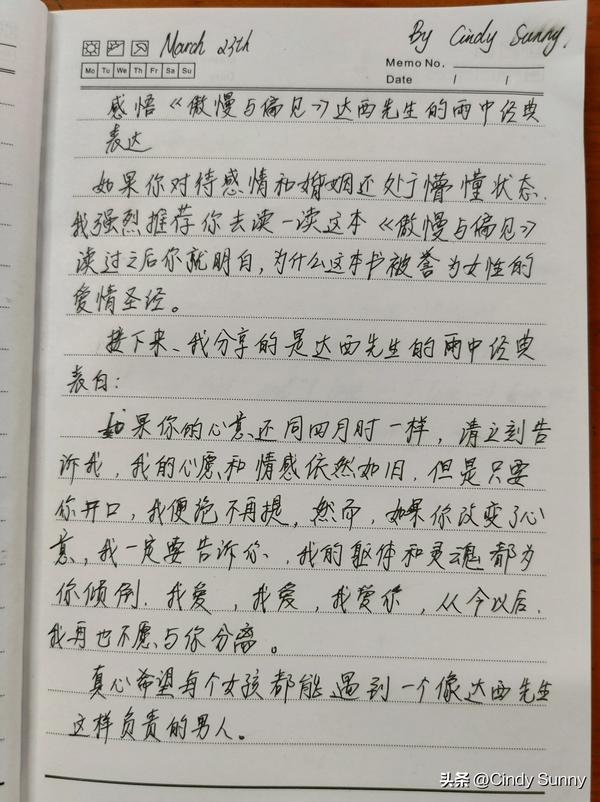 March 23th
By Cindy Sunny.
Mo Tu We Th Fr Sa Su
Memo No.
Date / /
感悟《傲慢与偏见》达西先生的雨中经典
表达
如果你对待感情和婚姻还处于懵懂状态.
我强烈推荐你去读一读这本《傲慢与偏见》
读过之后你就明白,为什么这本书被誉为女性的
爱情圣经。
接下来、我分享的是达西先生的雨中经典
表白:
如果你的心意还同四月时一样,请立刻告
诉我,我的心愿和情感依然如旧,但是只要
你开口,我便绝不再提,然而,如果你改变了心
意,我一定要告诉你、我的躯体和灵魂都为
你倾倒.我爱,我爱,我爱你,从今以后.
我再也不愿与你分离。
真心希望每个女孩都能遇到一个像达西先生
这样负责的男人。
头条 @Cindy Sunny